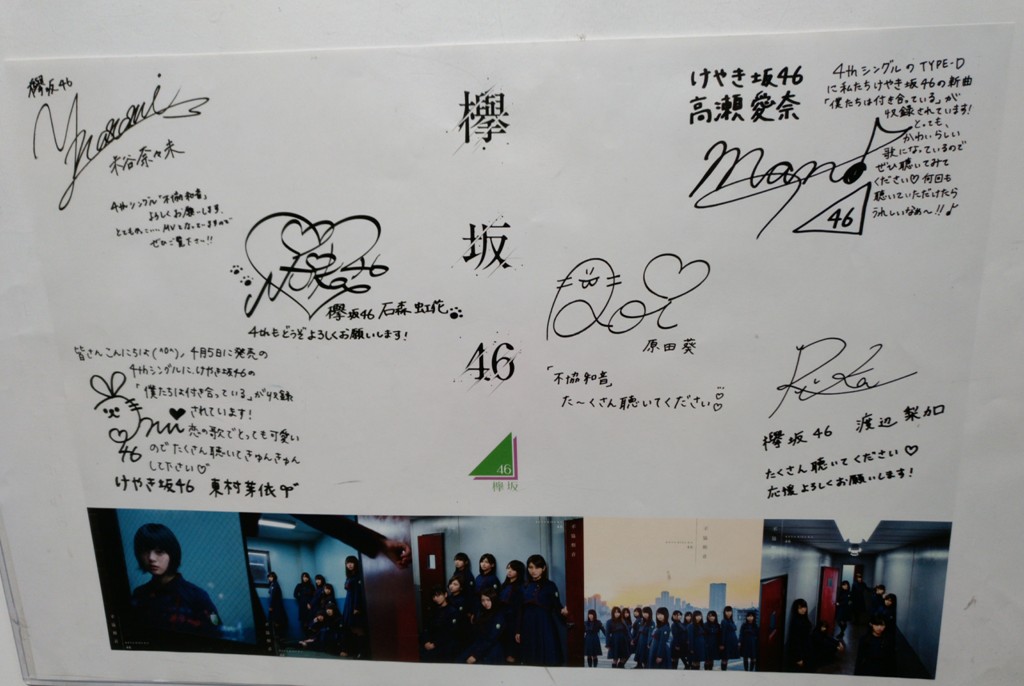 欅坂46
米谷奈々未
4thシングル"不協和音"
よろしくお願いします。
MVとなっていますので
ぜひご覧下さい!!
欅坂46
けやき坂46
高瀬愛奈
mana
46
4thシングルのTYPE-D
に私たちけやき坂46の新曲
「僕たちは付き合っている」が
収録されています!
とっても、
かわいらしい
歌になっているので
ぜひ聴いてみて
ください♡何回も
聴いていただけたら
うれしいなぁ〜!!♪
欅坂46 石森虹花
4thもどうぞよろしくお願いします!
Aoi
原田葵
「不協和音」
た〜くさん聴いてください
皆さんこんにちは(^o^)ノ 4月5日に発売の
4thシングルに、けやき坂46の
「僕たちは付き合っている」が収録
されています!
恋の歌でとっても可愛い
のでたくさん聴いてきゅんきゅん
して下さい♡
46
けやき坂46 東村芽依
Rika
欅坂46 渡辺梨加
たくさん聴いてください♡
応援よろしくお願いします!
46
欅坂